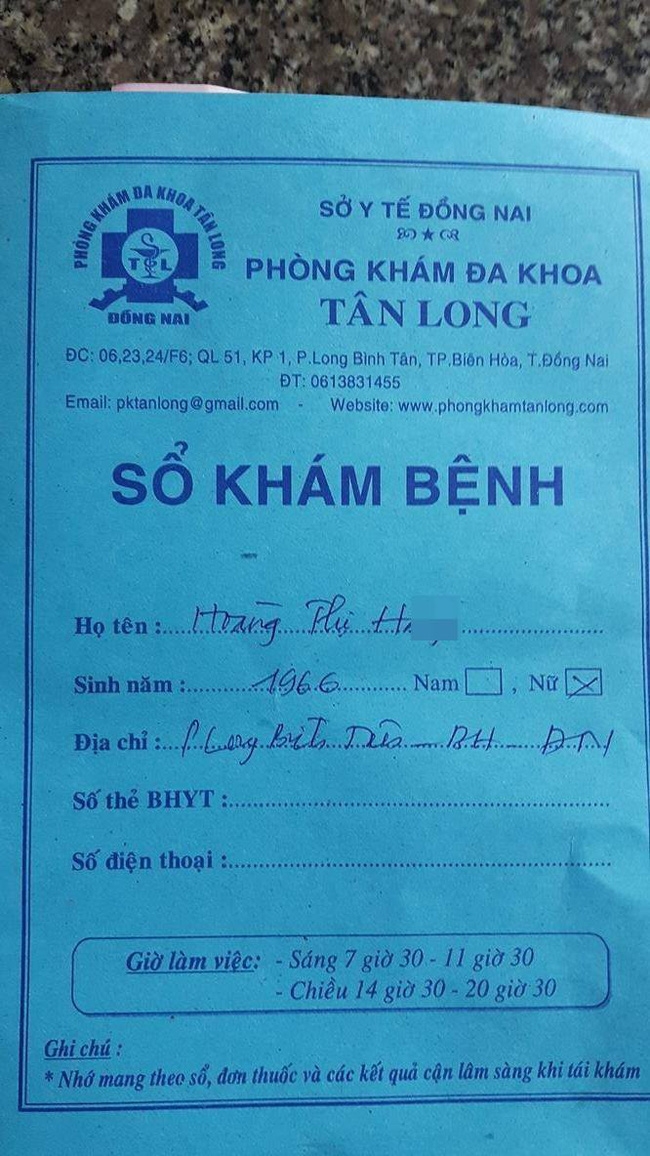 PHÒNG KHÁM ĐA KHOA TÂN LONG
T L
ĐỒNG NAI
SỞ Y TẾ ĐỒNG NAI
PHÒNG KHÁM ĐA KHOA
TÂN LONG
ĐC: 06,23,24/F6; QL 51, KP 1, P.Long Bình Tân, TP.Biên Hòa, T.Đồng Nai
ĐT: 0613831455
Email: pktanlong@gmail.com - Website: www.phongkhamtanlong.com
SỔ KHÁM BỆNH
Họ tên : Hoàng Thị
Sinh năm : 1966 Nam , Nữ
Địa chỉ : P Long Bình Tân - BH - ĐN
Số thẻ BHYT :
Số điện thoại :
Giờ làm việc: - Sáng 7 giờ 30 - 11 giờ 30
- Chiều 14 giờ 30 - 20 giờ 30
Ghi chú :
* Nhớ mang theo sổ, đơn thuốc và các kết quả cận lâm sàng khi tái khám